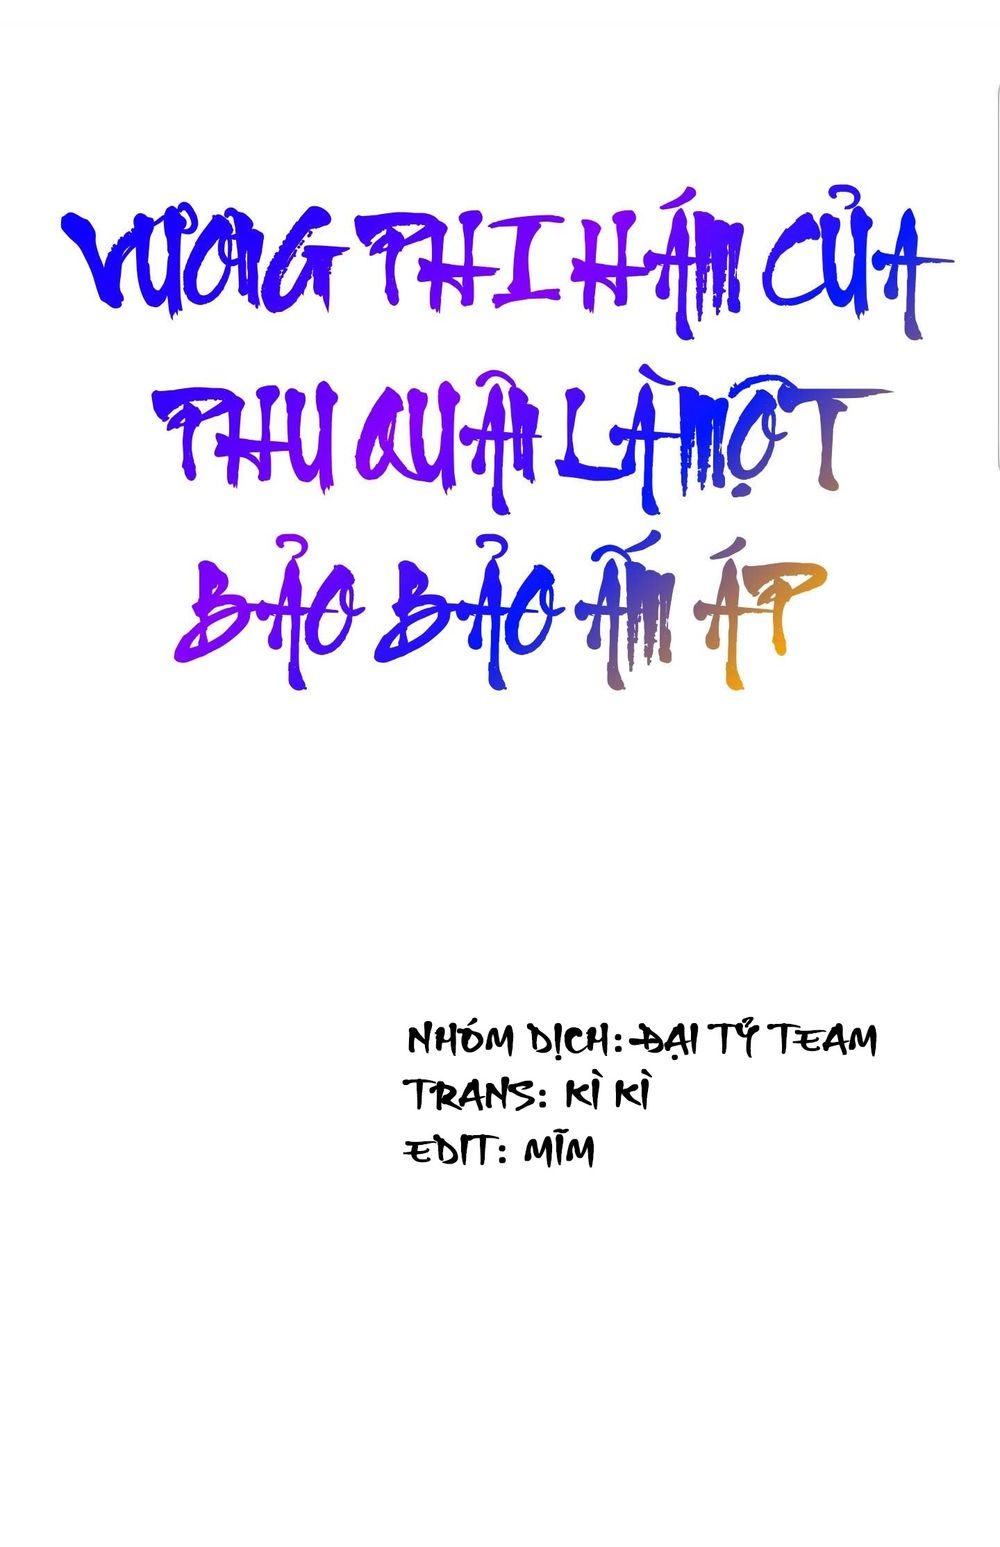 VƯƠNG PHI HÁM CỦA
PHU QUÂN LÀ MỘT
BẢO BẢO ẤM ÁP
NHÓM DỊCH: ĐẠI TỶ TEAM
TRANS: KÌ KÌ
EDIT: MĨM